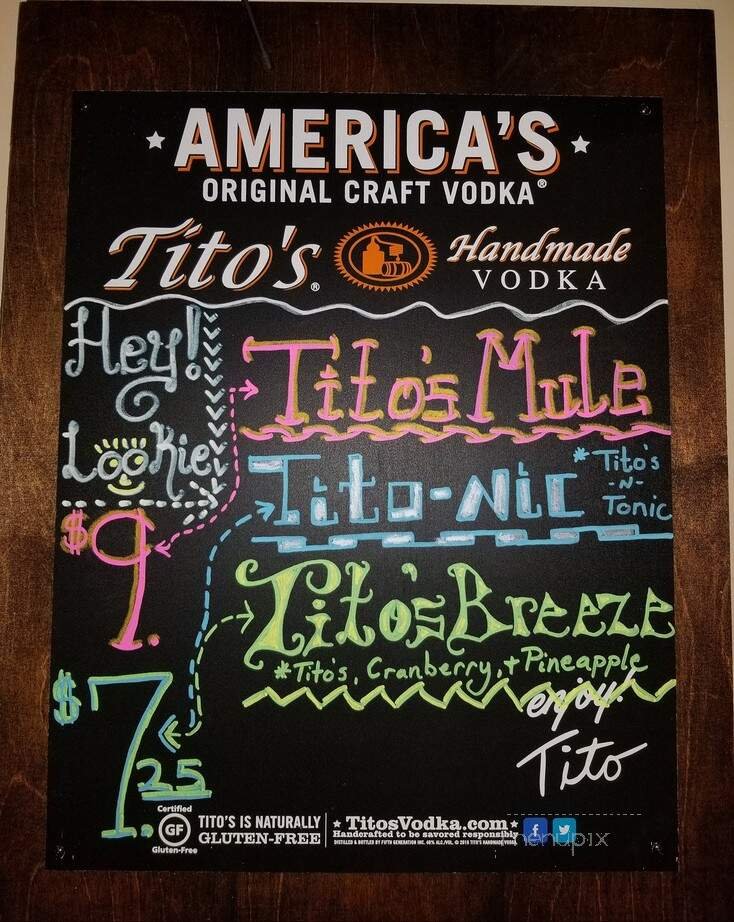 AMERICA'S
ORIGINAL CRAFT VODKA®
Tito's® Handmade
VODKA
Hey!
Lookie
Tito's Mule
$9.
Tito-nic *Tito's
-N-
Tonic
Tito's Breeze
*Tito's, Cranberry, + Pineapple
$7.25
enjoy!
Tito
Certified
GF
Gluten-Free
TITO'S IS NATURALLY
GLUTEN-FREE
TitosVodka.com
Handcrafted to be savored responsibly
DISTILLED & BOTTLED BY FIFTH GENERATION INC. 40% ALC./VOL. © 2016 TITO'S HANDMADE VODKA.
menupix